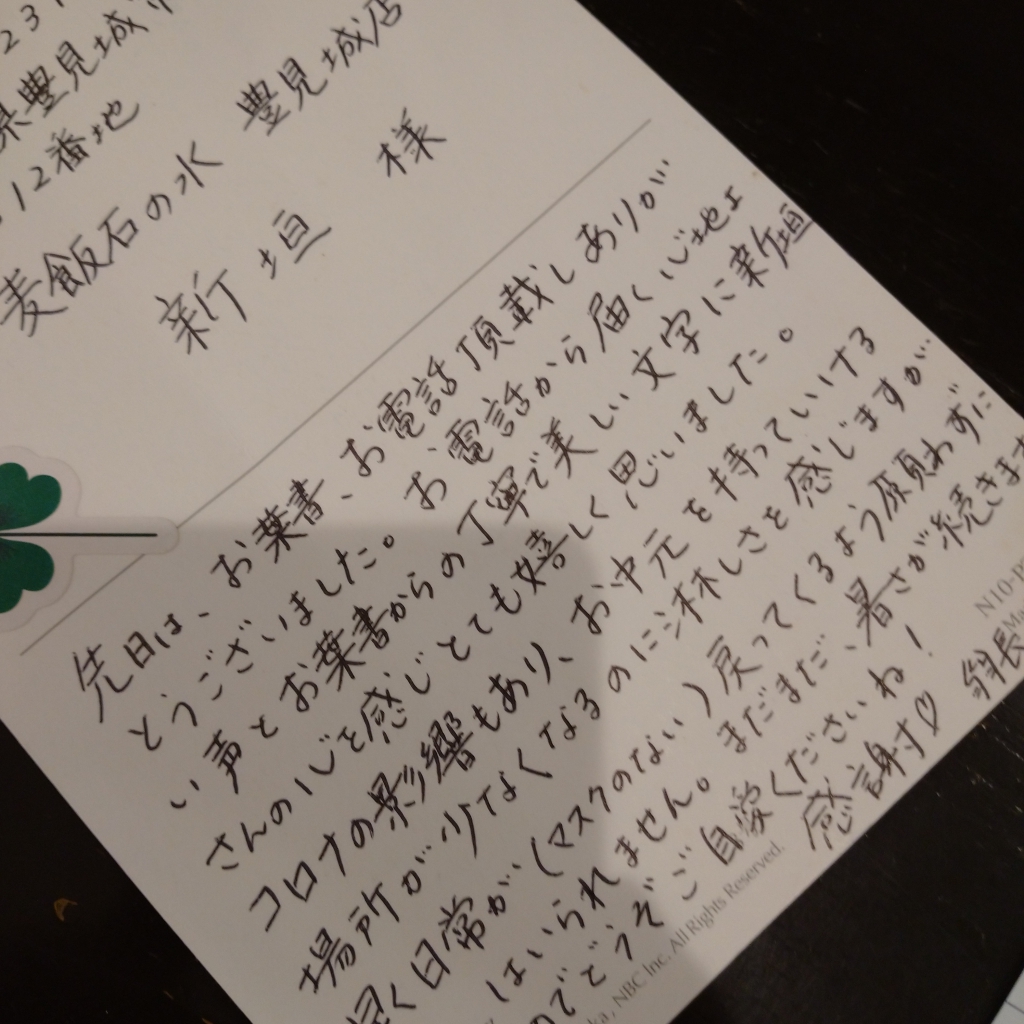 県豊見城
12番地
麦飯石の水 豊見城店
新垣 様
先日は、お葉書、お電話頂載しありが
とうございました。お電話から届く心地よ
い声とお葉書からの丁寧で美しい文字に新垣
さんの心を感じとても嬉しく思いました。
コロナの影響もあり、お中元を持っていける
場所が少なくなるのに淋しさを感じますが
早く日常が(マスクのない)戻ってくるよう願わずに
はいられません。まだまだ、暑さが続きます
のでどうぞご自愛くださいね!
感謝♡ 翁長
N10-P
NBC Inc. All Rights Reserved.